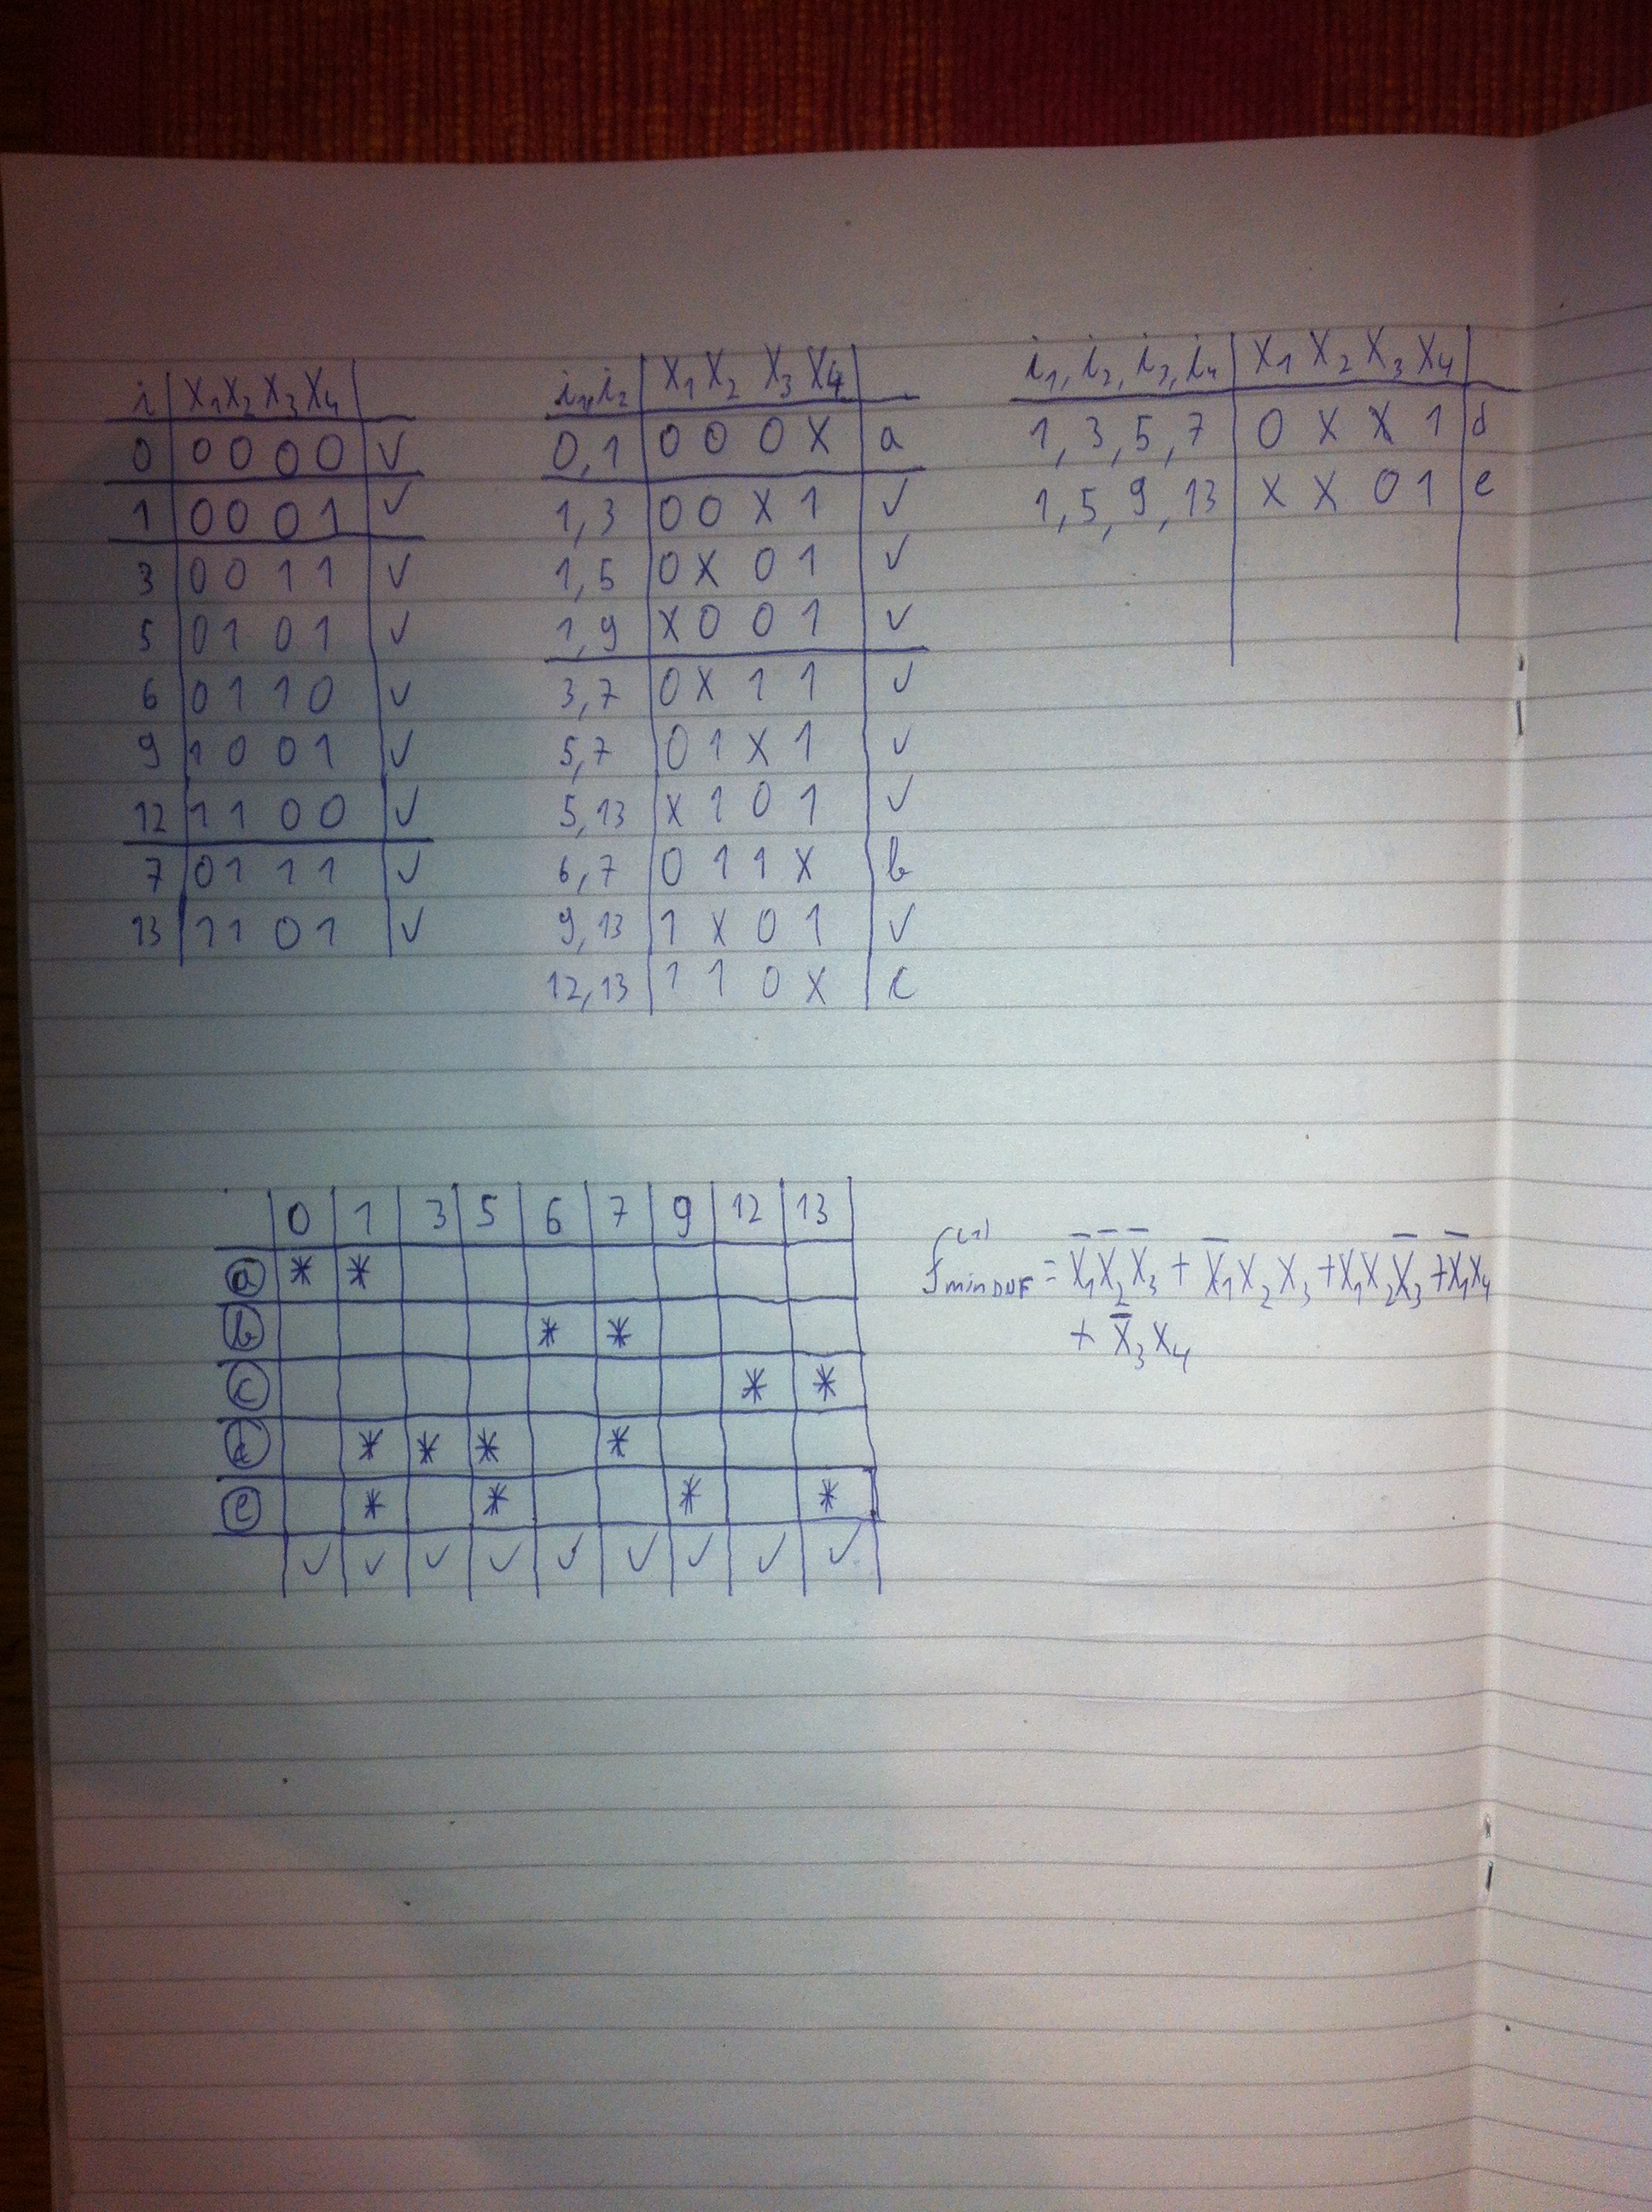 i | x₁ x₂ x₃ x₄ |
0 | 0 0 0 0 | ✓
1 | 0 0 0 1 | ✓
3 | 0 0 1 1 | ✓
5 | 0 1 0 1 | ✓
6 | 0 1 1 0 | ✓
9 | 1 0 0 1 | ✓
12 | 1 1 0 0 | ✓
7 | 0 1 1 1 | ✓
13 | 1 1 0 1 | ✓
i₁, i₂ | x₁ x₂ x₃ x₄ |
0,1 | 0 0 0 X | a
1,3 | 0 0 X 1 | ✓
1,5 | 0 X 0 1 | ✓
1,9 | X 0 0 1 | ✓
3,7 | 0 X 1 1 | ✓
5,7 | 0 1 X 1 | ✓
5,13 | X 1 0 1 | ✓
6,7 | 0 1 1 X | b
9,13 | 1 X 0 1 | ✓
12,13 | 1 1 0 X | c
i₁, i₂, i₃, i₄ | x₁ x₂ x₃ x₄ |
1,3,5,7 | 0 X X 1 | d
1,5,9,13 | X X 0 1 | e
| 0 | 1 | 3 | 5 | 6 | 7 | 9 | 12 | 13 |
ⓐ | * | * | | | | | | | |
ⓑ | | | | | * | * | | | |
ⓒ | | | | | | | | * | * |
ⓓ | | * | * | * | | * | | | |
ⓔ | | * | | * | | | * | | * |
| ✓ | ✓ | ✓ | ✓ | ✓ | ✓ | ✓ | ✓ | ✓ |
f⁽¹⁾ min DNF = x̅₁x̅₂x̅₃ + x̅₁x₂x₃ + x₁x₂x̅₃ + x̅₁x₄
+ x̅₃x₄